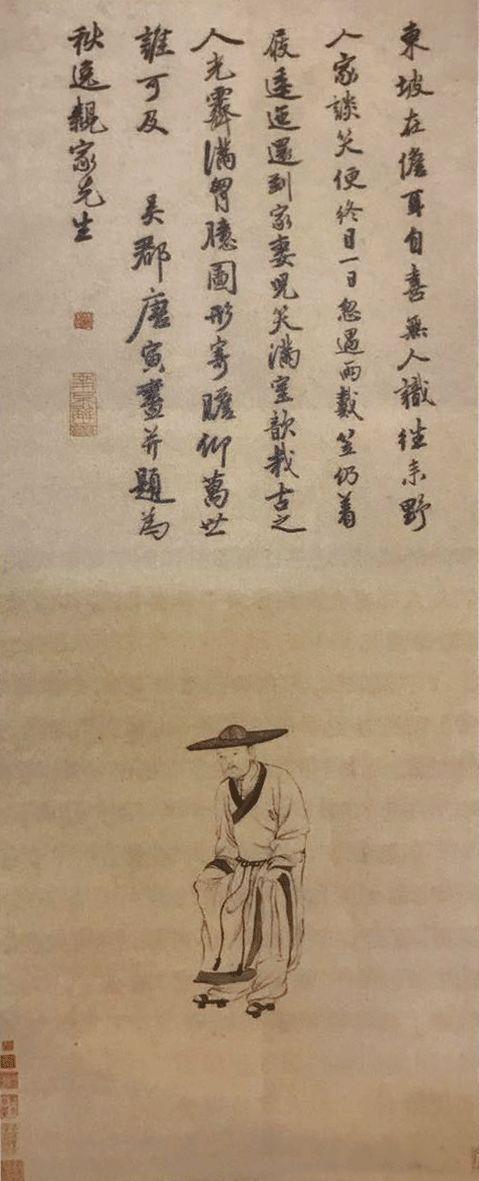 東坡在儋耳自喜無人識往來野
人家談笑便終日一日忽遇雨戴笠仍着
屐逶迤還到家妻兒笑滿室歆哉古之
人光霽滿胸臆圖形寄瞻仰萬世
誰可及 吳郡唐寅畫并題為
秋逸親家先生